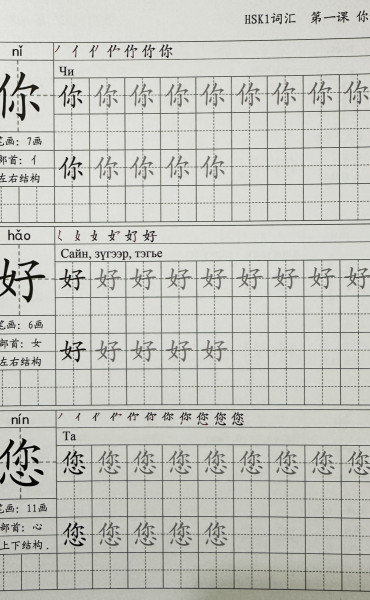 HSK1词汇 第一课 你
nǐ ノ 亻 你
Чи
你 你 你 你 你 你 你 你 你 你
笔画：7画
部首：亻 你 你 你 你 你
左右结构
hǎo 女 好
Сайн, зүгээр, тэгье
好 好 好 好 好 好 好 好 好 好
笔画：6画
部首：女 好 好 好 好 好
左右结构
nín ノ 亻 你 您
Та
您 您 您 您 您 您 您 您 您 您
笔画：11画
部首：心 您 您 您 您 您
上下结构.